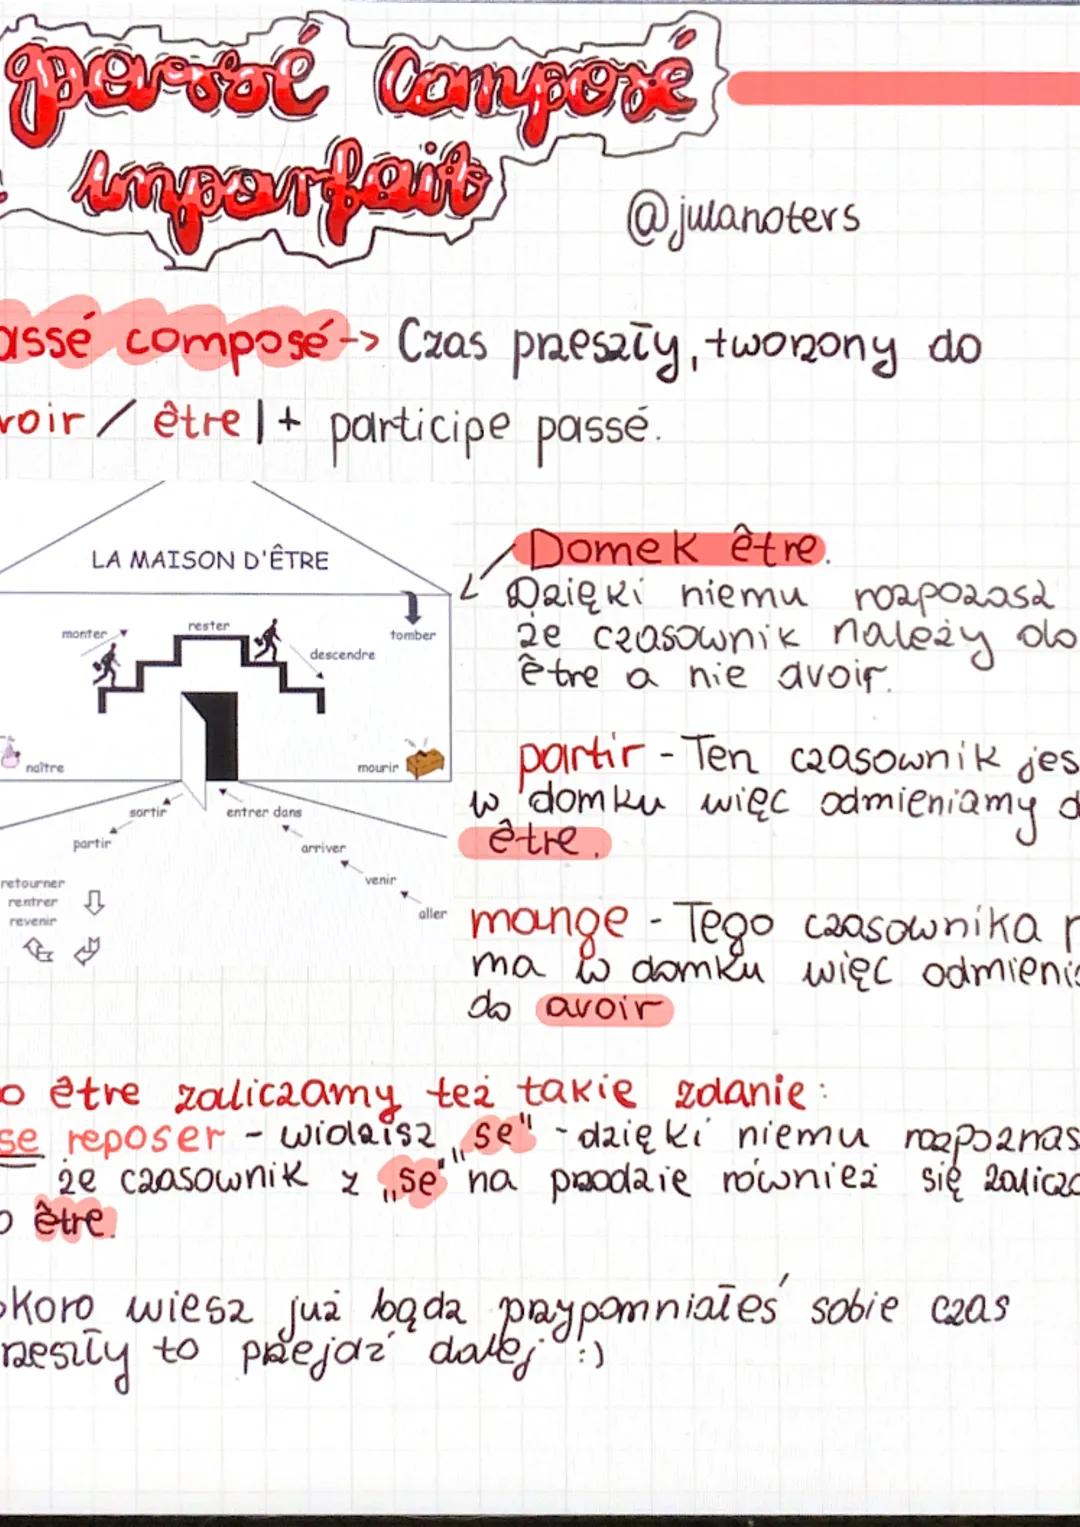 passé composé
imparfait
@julanoters
assé composé -> Czas przeszły, tworzony do
voir / être | + participe passé.
LA MAISON D'ÊTRE
monter
rester
descendre
tomber
naître
mourir
sortir
entrer dans
partir
arriver
venir
aller
retourner
rentrer
revenir
Domek être.
Dzięki niemu rozpozasz
że czasownik należy do
être a nie avoir.
partir - Ten czasownik jes
w domku więc odmieniamy d
être.
mange - Tego czasownika n
ma w domku więc odmienia
do avoir
o être zaliczamy też takie zdanie:
se reposer - widzisz „se" - dzięki niemu rozpoznas
że czasownik z „se" na przodzie również się zalicza
o être.
skoro wiesz już bądz przypomniałeś sobie czas
rzeszły to przejdź dalej :)